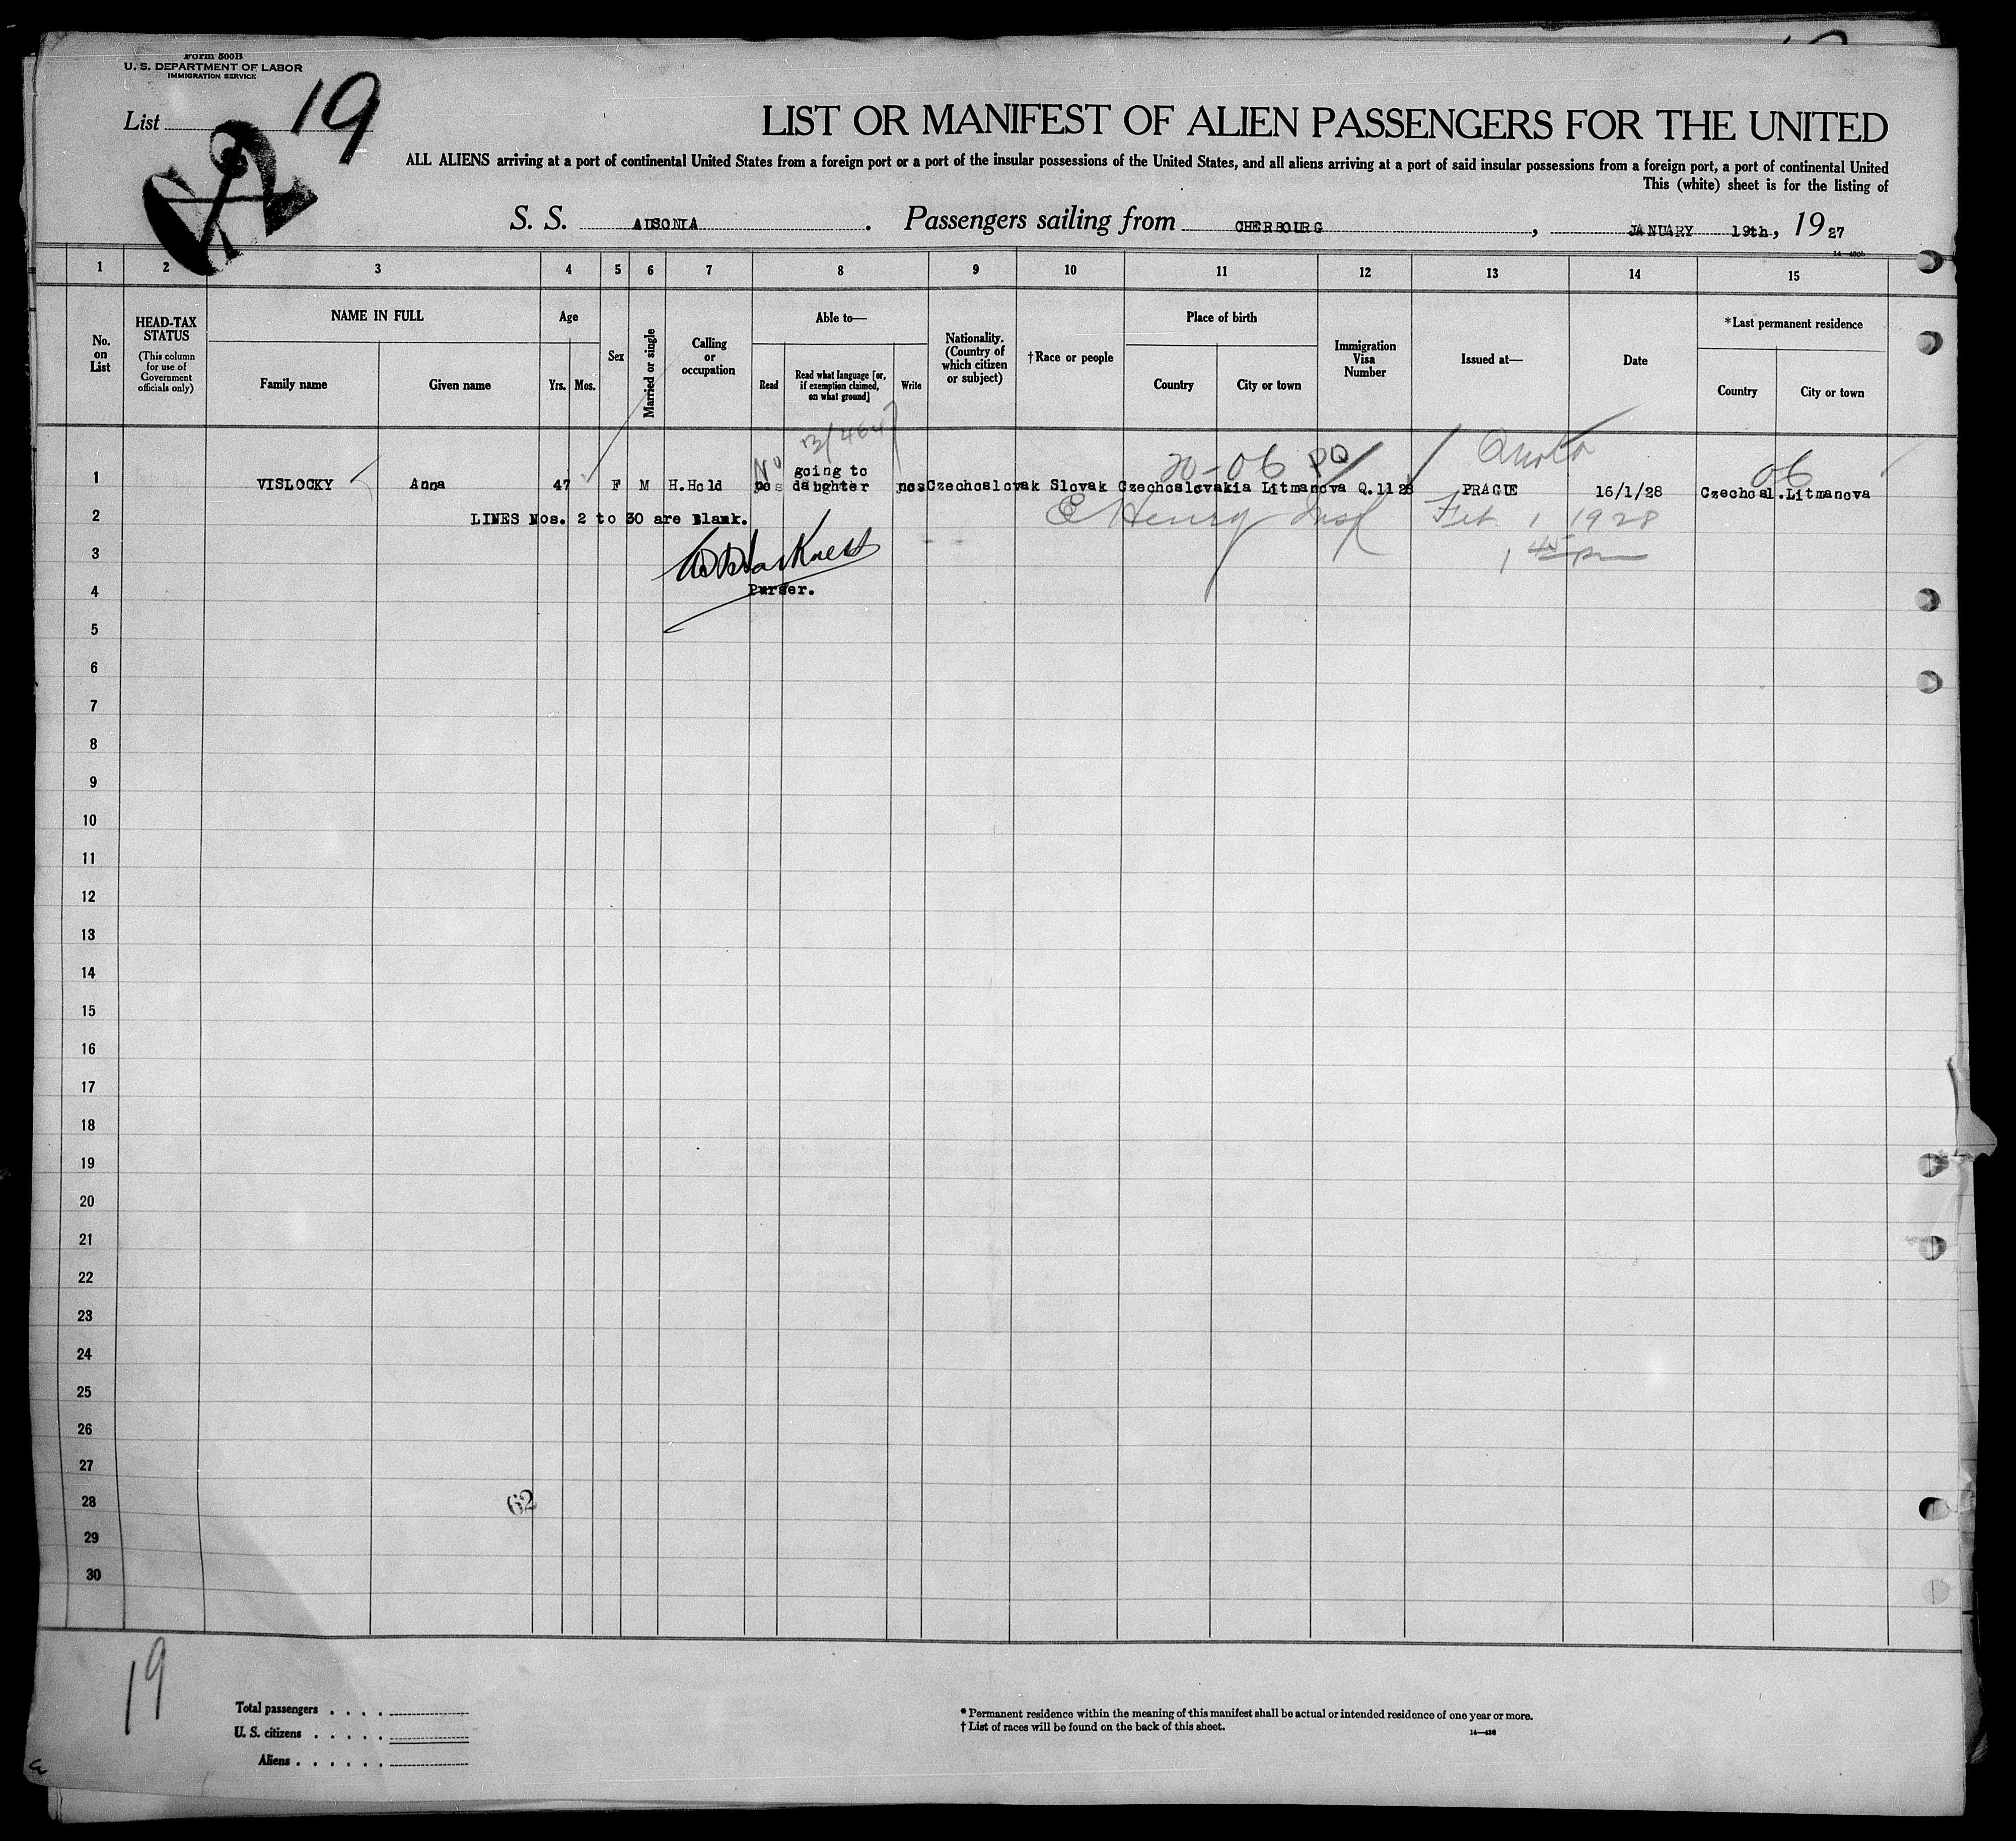 Form 500B
U. S. DEPARTMENT OF LABOR
IMMIGRATION SERVICE
List 19
LIST OR MANIFEST OF ALIEN PASSENGERS FOR THE UNITED
ALL ALIENS arriving at a port of continental United States from a foreign port or a port of the insular possessions of the United States, and all aliens arriving at a port of said insular possessions from a foreign port, a port of continental United
This (white) sheet is for the listing of
S. S. AUSONIA. Passengers sailing from CHERBOURG, JANUARY 19th, 1927
14—430b
1 2 3 4 5 6 7 8 9 10 11 12 13 14 15
No. on List
HEAD-TAX STATUS
(This column for use of Government officials only)
NAME IN FULL
Family name
Given name
Age
Yrs. Mos.
Sex
Married or single
Calling or occupation
Able to—
Read
Read what language [or, if exemption claimed, on what ground]
Write
Nationality. (Country of which citizen or subject)
†Race or people
Place of birth
Country
City or town
Immigration Visa Number
Issued at—
Date
*Last permanent residence
Country
City or town
No 20-06 PQ Quota 06
going to
1 VISLOCKY Anna 47 F M H.Hold daughter Czechoslovak Slovak Czechoslovakia Litmanova Q.1128 PRAGUE 16/1/28 Czechosl.Litmanova
2 LINES Nos. 2 to 30 are Blank. Henry Insp Feb 1 1928
3 1 45 pm
4 Purser.
5
6
7
8
9
10
11
12
13
14
15
16
17
18
19
20
21
22
23
24
25
26
27
28 62
29
30
19
Total passengers . . . .
U. S. citizens . . . . .
Aliens . . . . . .
* Permanent residence within the meaning of this manifest shall be actual or intended residence of one year or more.
† List of races will be found on the back of this sheet.
14—430